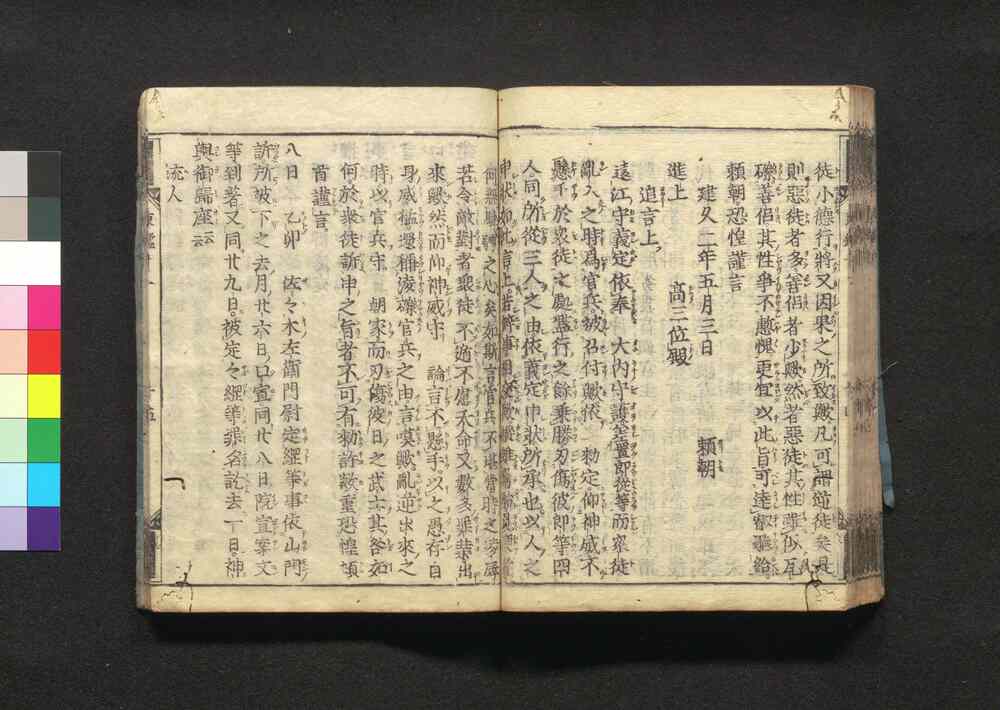 徒小德行將又因果之所致歟凡可謂道徒矣是
則惡徒者多善侶者少歟然者惡徒其性雖似瓦
礫善侶其性爭不慙愧更宜以此旨可達叡聽給
頼朝恐惶謹言
建久二年五月三日 頼朝
進上 高三位殿
追言上
遠江守義定依奉 大内守護差置郎從等而衆徒
亂入之時爲官兵被召付歟依 勅定仰神威不
懸手於衆徒之處濫行之餘乘勝刃傷彼郎等四
人同所從三人之由依義定申狀所承也以人之
申狀如此言上
何無
之心矣如斯言官兵不堪當時之
若令敵對者衆徒不過不慮天命又數多
出
來歟然而仰神威守 論言不懸手以之愚存自
身威猛還稱濫礫官兵之由言哭歟亂逆出來之
時以官兵守 朝家而刃傷彼日之武士其咎如
何於衆徒訴申之旨者不可有勅許歟重恐惶頓
首謹言
八日 乙卯 佐々木左衞門尉定綱等事依山門
訴所被下之去月廿六日口宣同廿八日院宣案文
等到著又同廿九日被定々綱等罪名訖去一日神
輿御歸座云云
流人
東鑑十一
十五